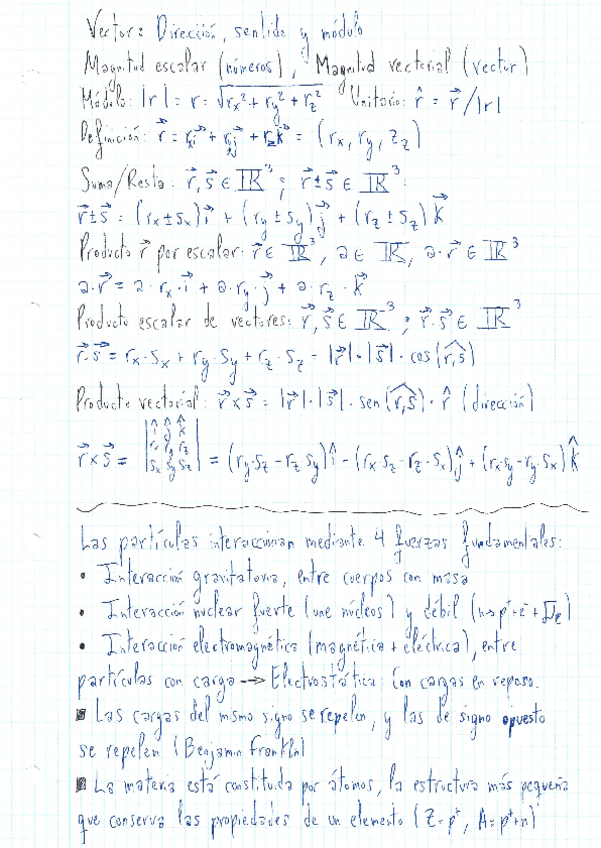 Vector: Dirección, sentido y módulo
Magnitud escalar (números), Magnitud vectorial (vector)
Módulo: |r| = r = √(rx² + ry² + rz²)   Unitario: r̂ = r⃗/|r|
Definición: r⃗ = rx i⃗ + ry j⃗ + rz k⃗ = (rx, ry, zz)
Suma/Resta: r⃗, s⃗ ∈ ℝ³ ; r⃗ ± s⃗ ∈ ℝ³
r⃗ ± s⃗ = (rx ± sx) i⃗ + (ry ± sy) j⃗ + (rz ± sz) k⃗
Producto r⃗ por escalar: r⃗ ∈ ℝ³, a ∈ ℝ, a · r⃗ ∈ ℝ³
a · r⃗ = a · rx · i⃗ + a · ry · j⃗ + a · rz · k⃗
Producto escalar de vectores: r⃗, s⃗ ∈ ℝ³ ; r⃗ · s⃗ ∈ ℝ³
r⃗ · s⃗ = rx · sx + ry · sy + rz · sz = |r⃗| · |s⃗| · cos(r,s)
Producto vectorial: r⃗ × s⃗ = |r⃗| · |s⃗| · sen(r,s) · r̂ (dirección)
r⃗ × s⃗ = | î ĵ k̂ ; rx ry rz ; sx sy sz | = (ry·sz - rz sy) î - (rx·sz - rz·sx) ĵ + (rx·sy - ry·sx) k̂
Las partículas interaccionan mediante 4 fuerzas fundamentales:
• Interacción gravitatoria, entre cuerpos con masa
• Interacción nuclear fuerte (une núcleos) y débil (n→p⁺+e⁻+ν̄e)
• Interacción electromagnética (magnética + eléctrica), entre
partículas con carga → Electrostática: Con cargas en reposo.
■ Las cargas del mismo signo se repelen, y las de signo opuesto
se repelen (Benjamin Franklin)
■ La materia está constituida por átomos, la estructura más pequeña
que conserva las propiedades de un elemento (Z=p⁺, A=p⁺+n)